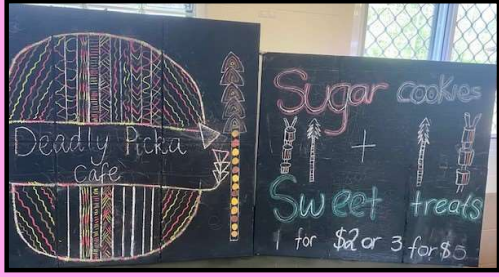 Deadly Picka
Cafe
Sugar cookies
+
Sweet treats
1 for $2 or 3 for $5